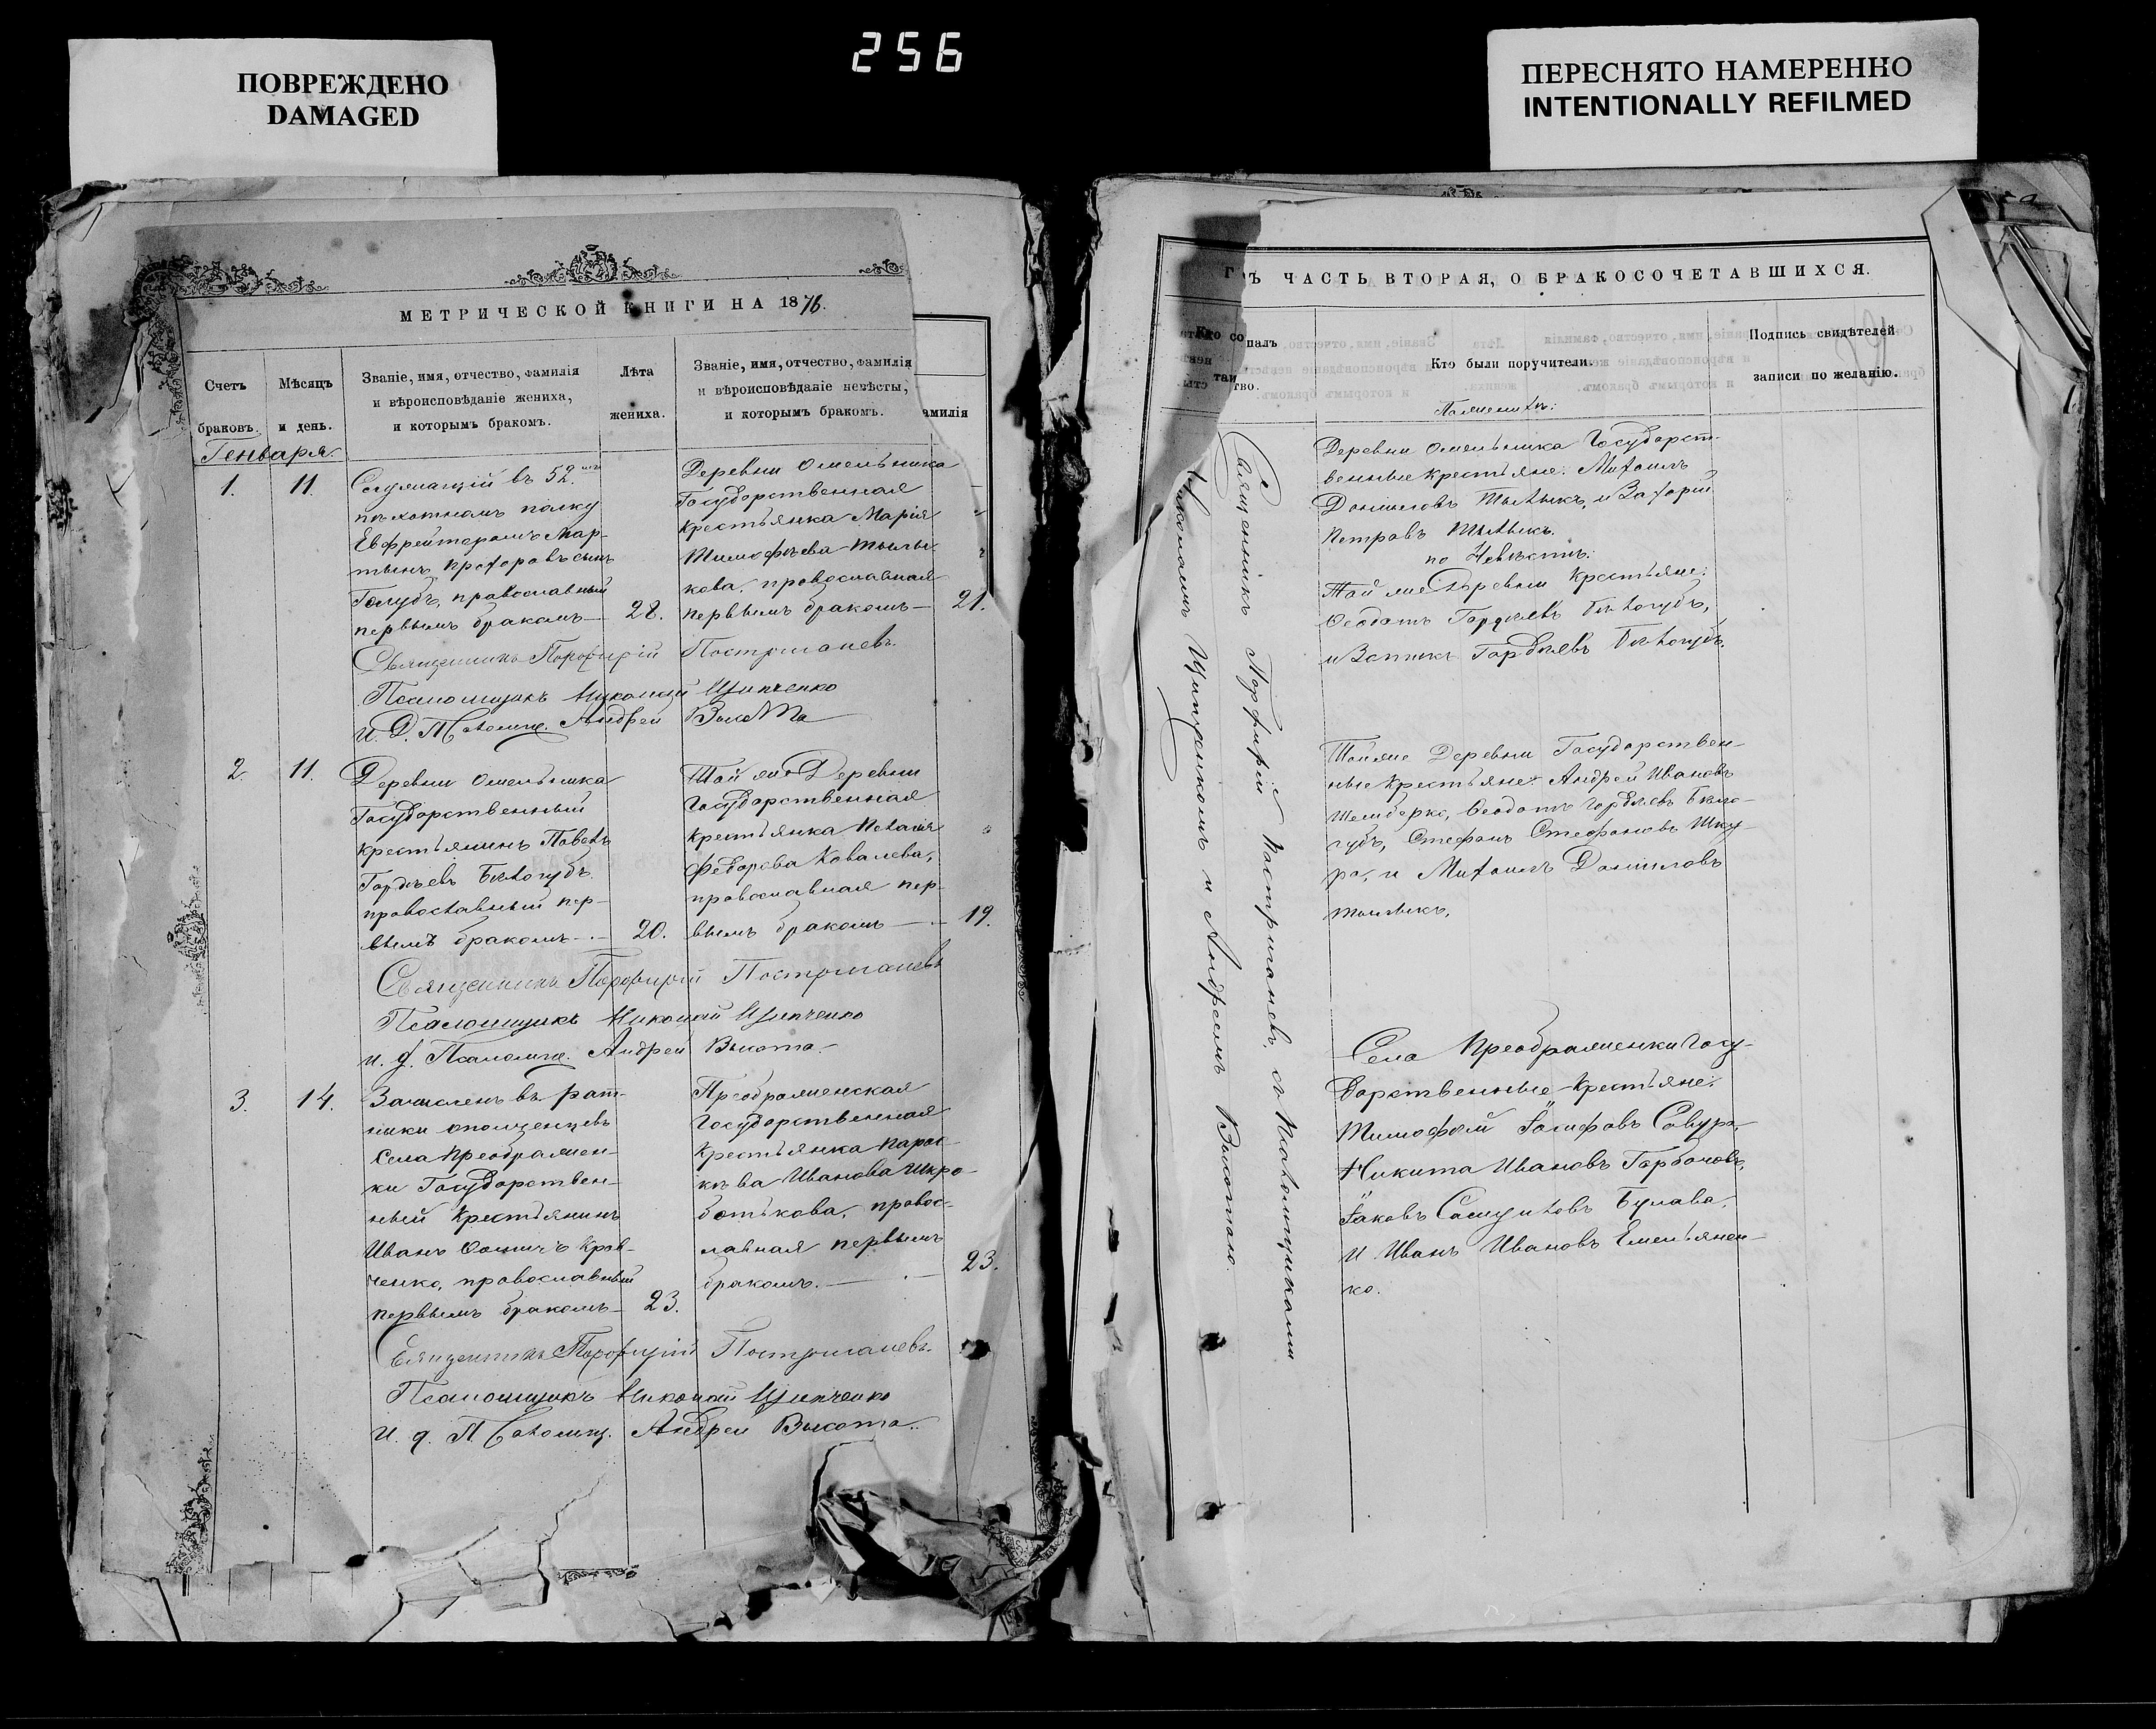 256
ПОВРЕЖДЕНО
DAMAGED
ПЕРЕСНЯТО НАМЕРЕННО
INTENTIONALLY REFILMED
МЕТРИЧЕСКОЙ КНИГИ НА 1876.
Счетъ
браковъ.
Мѣсяцъ
и день.
Званіе, имя, отчество, фамилія
и вѣроисповѣданіе жениха,
и которымъ бракомъ.
Лѣта
жениха.
Званіе, имя, отчество, фамилія
и вѣроисповѣданіе невѣсты,
и которымъ бракомъ.
амилія
Генваря.
1.
11.
Служащій въ 52.
пѣхотномъ полку
Евфрейтеромъ Мар-
тынъ Прохоровъ сынъ
Голубъ, православный
первымъ бракомъ
28.
Деревни Омельника
Государственная
Крестьянка Марія
Тимофѣева
кова, православная
первымъ бракомъ
21.
Священникъ Порфирій
Псаломщикъ Николай Ципченко
и. д. Псаломщ. Андрей Высота
2.
11.
Деревни Омельника
Государственный
Крестьянинъ Павелъ
Гордѣевъ Бѣлогубъ
православный пер-
вымъ бракомъ
20.
Той же Деревни
Государственная
Крестьянка Пелагія
Федорова Ковалева,
православная пер-
вымъ бракомъ
19.
Священникъ Порфирій
Псаломщикъ Николай Ципченко
и. д. Псаломщ. Андрей Высота.
3.
14.
Зачисленъ въ рат-
ники ополченцевъ
Села Преображен-
ки Государствен-
ный Крестьянинъ
Иванъ Крав-
ченко, православный
первымъ бракомъ
23.
Преображенская
Государственная
Крестьянка Парас-
кѣва Иванова Шкро-
ботькова, правос-
лавная первымъ
бракомъ.
23.
Священникъ Порфирій
Псаломщикъ Николай Ципченко
и. д. Псаломщ. Андрей Высота.
ЧАСТЬ ВТОРАЯ, О БРАКОСОЧЕТАВШИХСЯ.
Кто со
палъ
таи
тво.
Кто были поручители.
Подпись свидѣтелей
записи по желанію.
По женихѣ:
Деревни Омельника Государст-
венные Крестьяне: Михаилъ
Даниловъ и Захарій
Петровъ
по Невѣстѣ:
Той же Деревни Крестьяне:
Феодотъ Гордѣевъ Бѣлогубъ,
и Гордѣевъ Бѣлогубъ.
Той же Деревни Государствен-
ные Крестьяне: Андрей Ивановъ
Феодотъ Гордѣевъ Бѣло-
губъ, Стефанъ Стефановъ Шку-
ра, и Михаилъ Даниловъ
Села Преображенки Госу-
дарственные Крестьяне:
Тимофѣй Іосифовъ Савура,
Никита Ивановъ Горбачовъ,
Іаковъ Самуиловъ Булава,
и Иванъ Ивановъ Емельянен-
ко.
Священникъ Порфирій съ Псаломщиками
Николаемъ Ципченкомъ и Андреемъ Высотою.